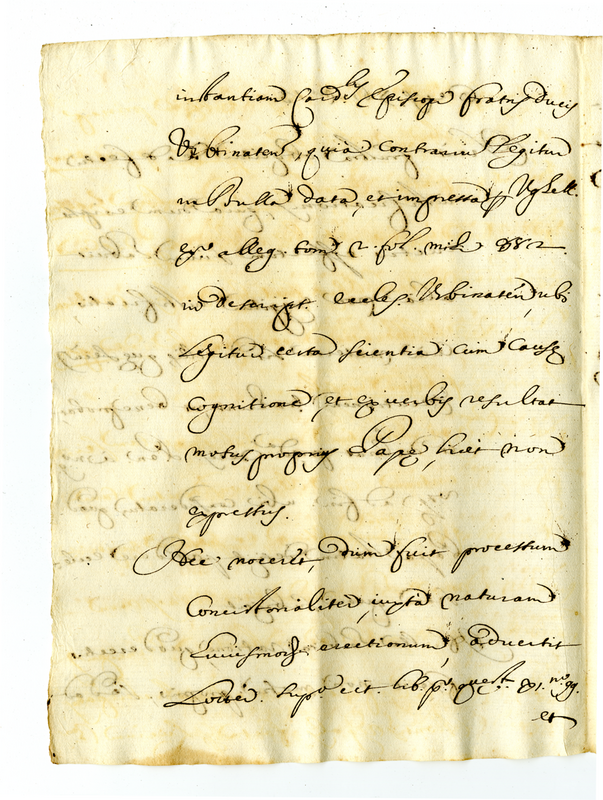 instantiam Card.lis Episcopi fratris Ducis
Urbinaten., quia contrarium legitur
in Bulla data, et impressa p. Ughell.
alleg. tom. 2. fol. mih. 882.
in descript. eccles. Urbinaten., ubi
Legitur certa scientia cum causę
Cognitione, et ex verbis resultat
motus proprius Papę, licet non
expressus.
Nec nocent dum fuit processum
Concistorialiter, iuxta naturam
huiusmodi erectionum, advertit
Lotter. sup. cit. lib. p.o quęst. 81. n.o 99.
et